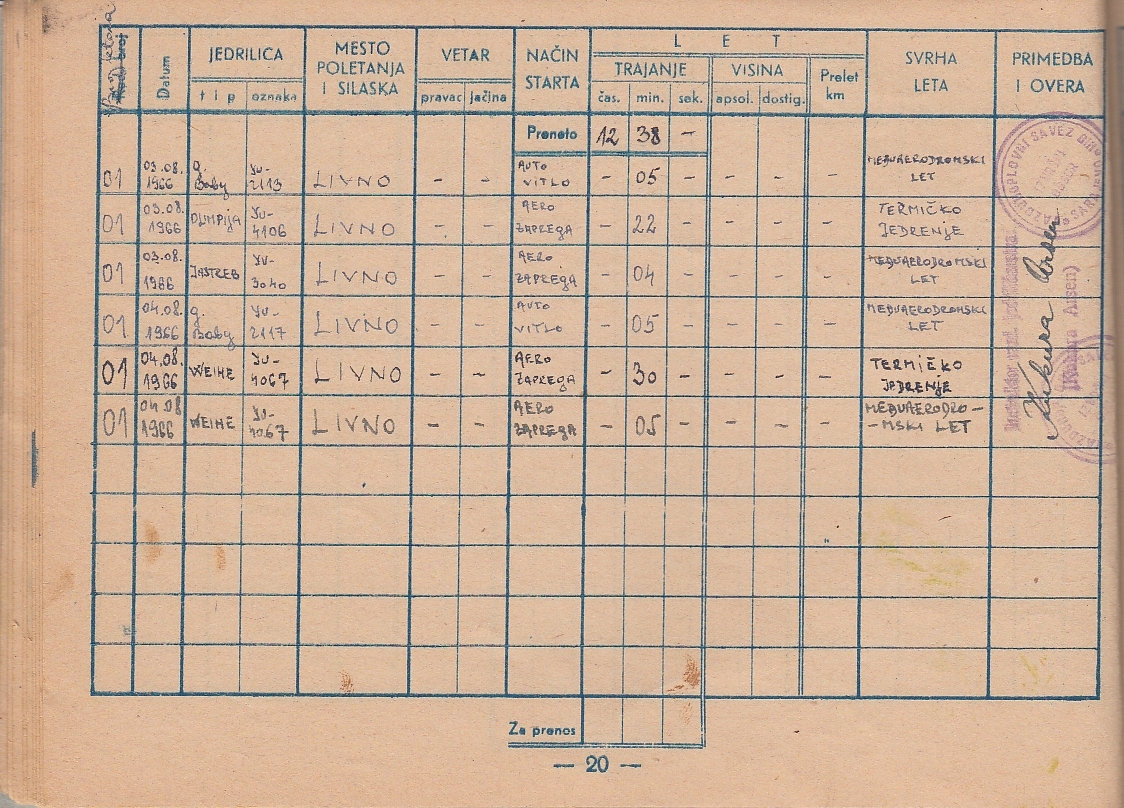 Broj letova
Datum
JEDRILICA
tip
oznaka
MESTO
POLETANJA
I SILASKA
VETAR
pravac
jačina
NAČIN
STARTA
LET
TRAJANJE
čas.
min.
sek.
VISINA
apsol.
dostig.
Prelet
km
SVRHA
LETA
PRIMEDBA
I OVERA
Preneto 12 38 -
01 03.08. 1966 g. Baby YU-2113 LIVNO - - AUTO VITLO - 05 - - - - MEĐUAERODROMSKI LET
01 03.08. 1966 OLIMPIJA YU-4106 LIVNO - - AERO ZAPREGA - 22 - - - - TERMIČKO JEDRENJE
01 03.08. 1966 JASTREB YU-3040 LIVNO - - AERO ZAPREGA - 04 - - - - MEĐUAERODROMSKI LET
01 04.08. 1966 g. Baby YU-2117 LIVNO - - AUTO VITLO - 05 - - - - MEĐUAERODROMSKI LET
01 04.08. 1966 WEIHE YU-4067 LIVNO - - AERO ZAPREGA - 30 - - - - TERMIČKO JEDRENJE
01 04.08 1966 WEIHE YU-4067 LIVNO - - AERO ZAPREGA - 05 - - - - MEĐUAERODRO-
-MSKI LET
Kukura Arsen
(Kukura Arsen)
Za prenos
— 20 —